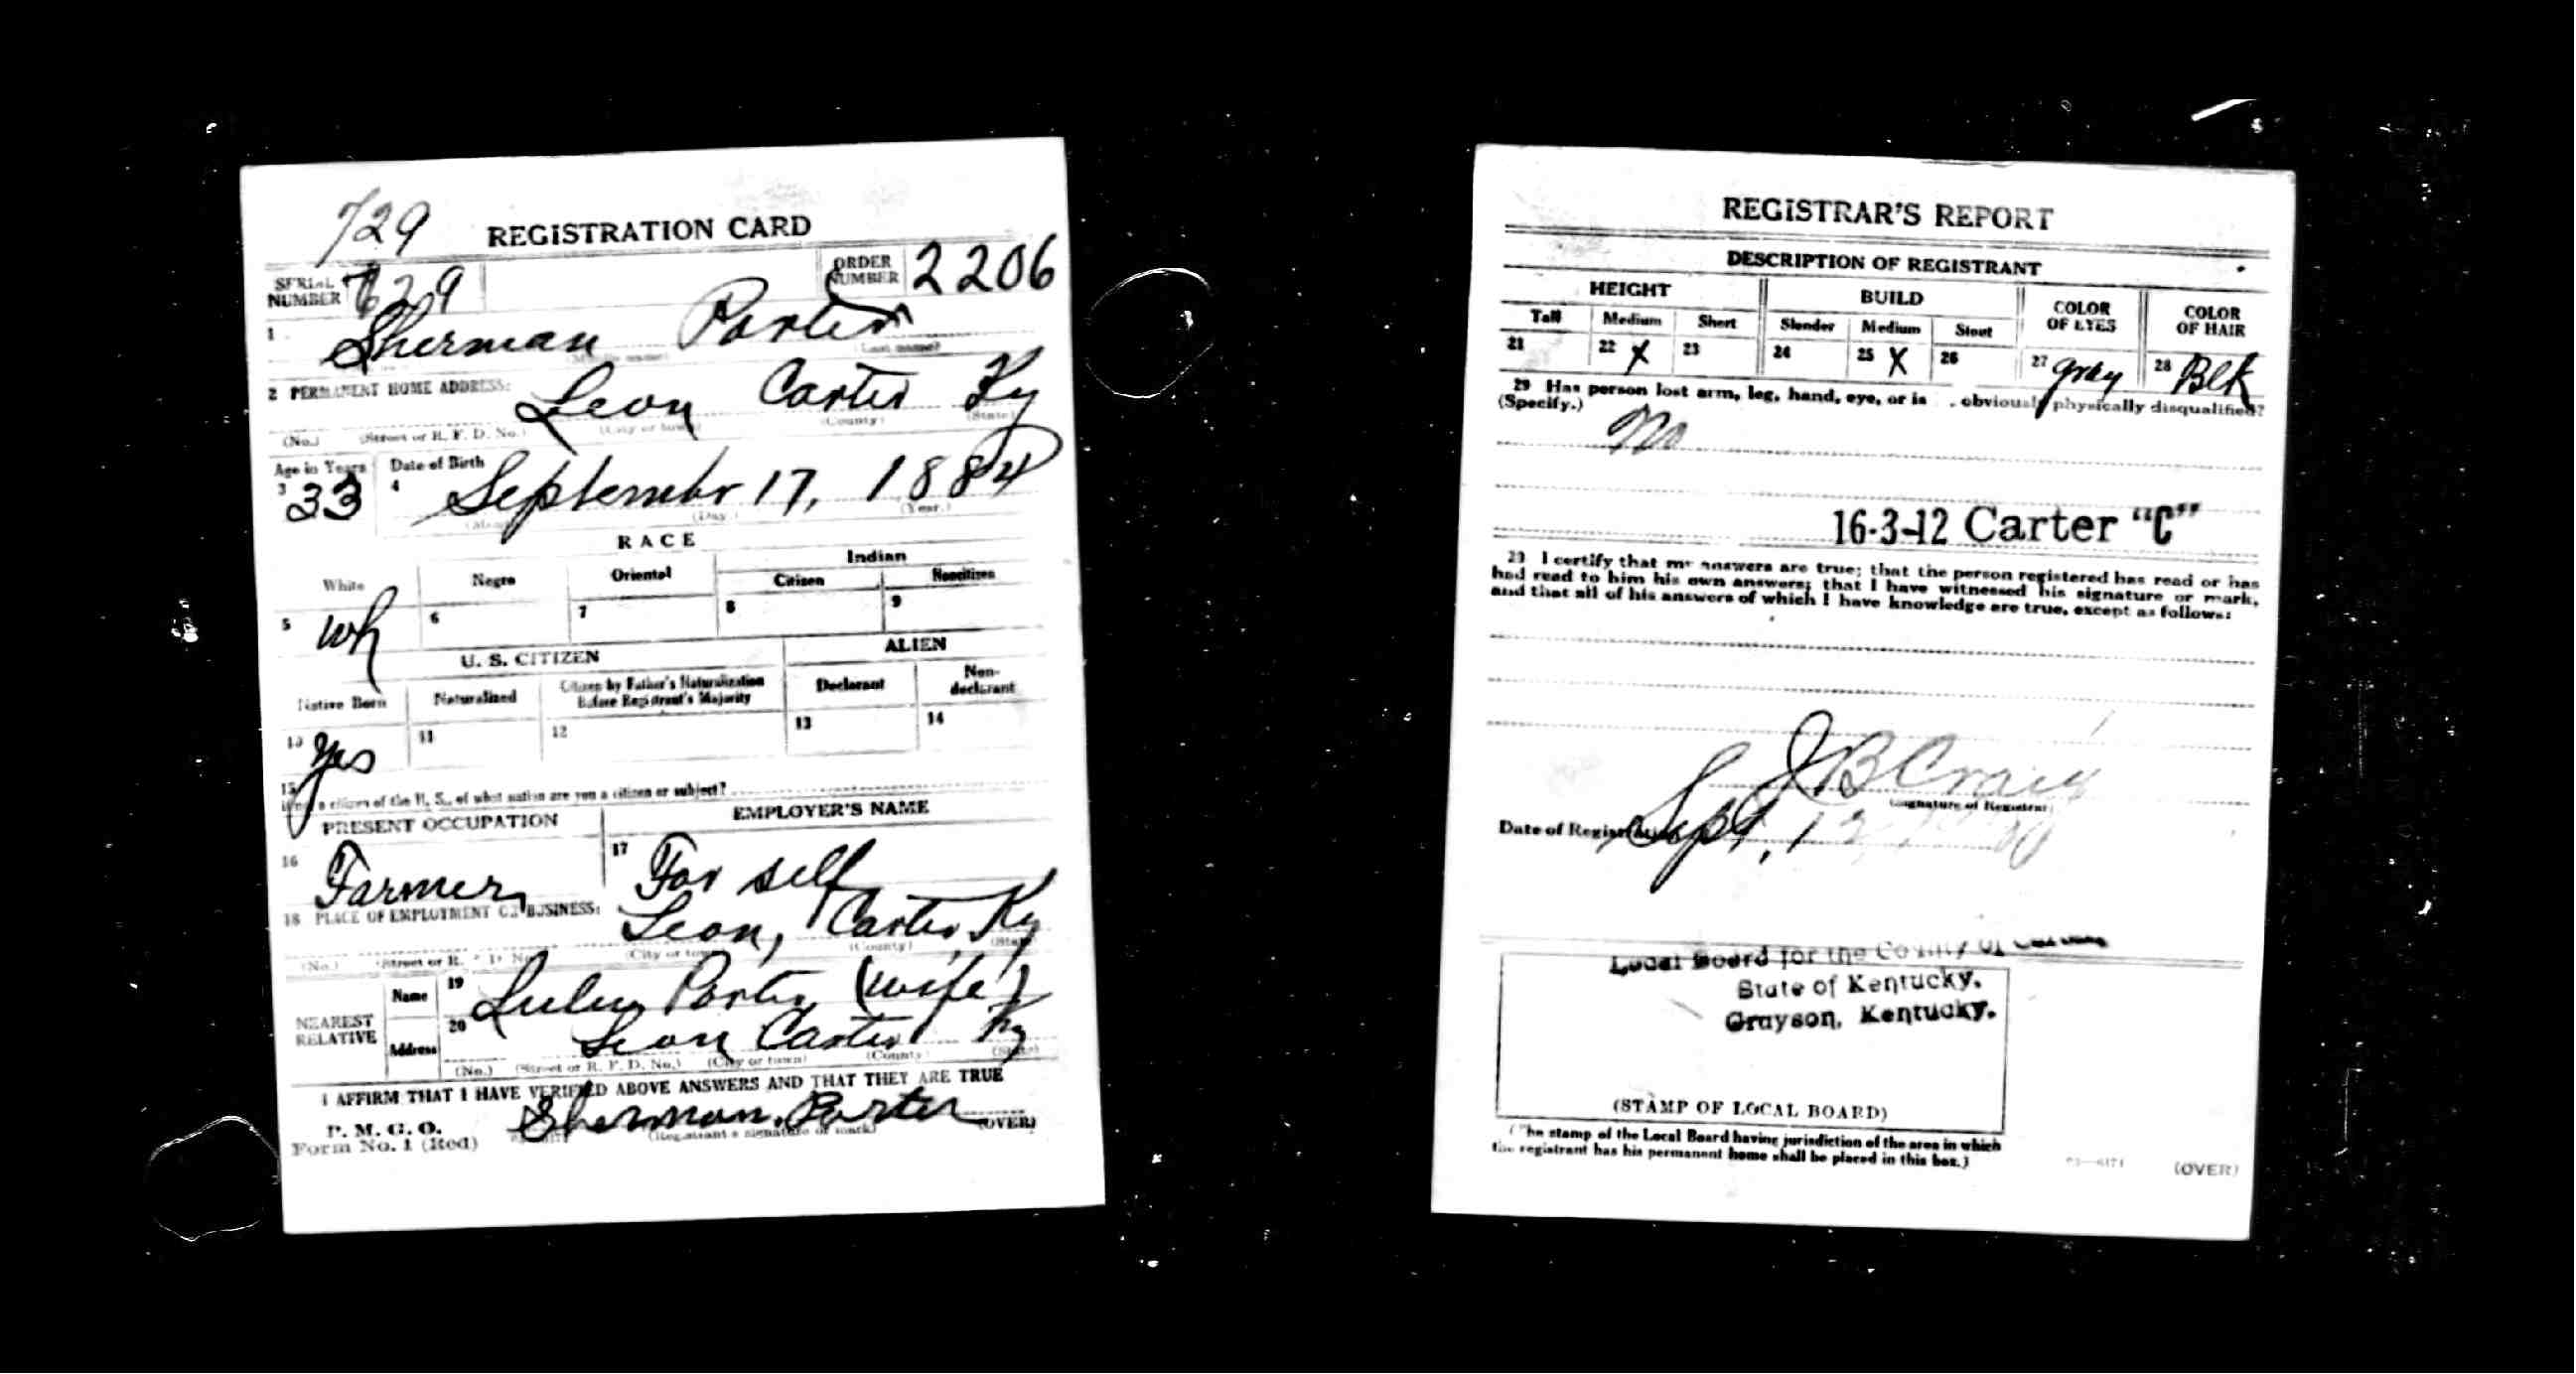 729
REGISTRATION CARD
SERIAL NUMBER 729 ORDER NUMBER 2206
1 Sherman Porter
(Middle name) (Last name)
2 PERMANENT HOME ADDRESS:
Leon Carter Ky
(No.) (Street or R. F. D. No.) (City or town) (County) (State)
Age in Years Date of Birth
3 33 4 September 17, 1884
(Month) (Day.) (Year.)
RACE
White Negro Oriental Indian
Citizen Noncitizen
5 Wh 6 7 8 9
U. S. CITIZEN ALIEN
Native Born Naturalized Citizen by Father's Naturalization Before Registrant's Majority Declarant Non-declarant
10 Yes 11 12 13 14
15 If not a citizen of the U. S., of what nation are you a citizen or subject?
PRESENT OCCUPATION EMPLOYER'S NAME
16 Farmer 17 For self
18 PLACE OF EMPLOYMENT OR BUSINESS:
Leon, Carter Ky
(No.) (Street or R. F. D. No.) (City or town) (County) (State)
NEAREST RELATIVE
Name 19 Lulu Porter (wife)
Address 20 Leon Carter Ky
(No.) (Street or R. F. D. No.) (City or town) (County) (State)
I AFFIRM THAT I HAVE VERIFIED ABOVE ANSWERS AND THAT THEY ARE TRUE
P. M. G. O.
Form No. 1 (Red) Sherman Porter (OVER)
(Registrant's signature or mark)
REGISTRAR'S REPORT
DESCRIPTION OF REGISTRANT
HEIGHT BUILD COLOR OF EYES COLOR OF HAIR
Tall Medium Short Slender Medium Stout
21 22 X 23 24 25 X 26 27 gray 28 Blk
29 Has person lost arm, leg, hand, eye, or is obviously physically disqualified?
(Specify.)
No
16-3-12 Carter "C"
I certify that my answers are true; that the person registered has read or has
had read to him his own answers; that I have witnessed his signature or mark,
and that all of his answers of which I have knowledge are true, except as follows:
J B Craig
(Signature of Registrar)
Date of Registration Sept, 12,
Local Board for the County of Carter
State of Kentucky.
Grayson, Kentucky.
(STAMP OF LOCAL BOARD)
(The stamp of the Local Board having jurisdiction of the area in which
the registrant has his permanent home shall be placed in this box.)
(OVER)